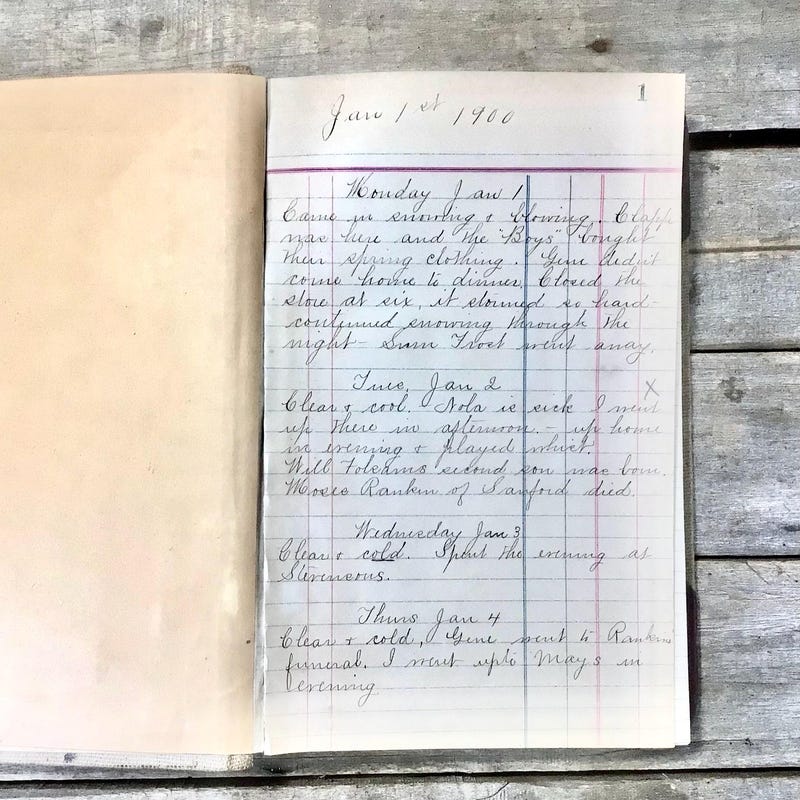 1
Jan 1st 1900
Monday Jan 1
Came in snowing & blowing. Clapp
was here and the "Boys" bought
their spring clothing. Gene didn't
come home to dinner. Closed the
store at six, it stormed so hard-
continued snowing through the
night- Sum Frost went away.
Tues, Jan 2 X
Clear & cool. Nola is sick I went
up there in afternoon. - up home
in evening & played whist.
Will Folsoms second son was born.
Moses Rankin of Sanford died.
Wednesday Jan 3
Clear & cold. Spent the evening at
Stevensons.
Thurs Jan 4
Clear & cold, Gene went to Rankins
funeral. I went upto Mays in
evening